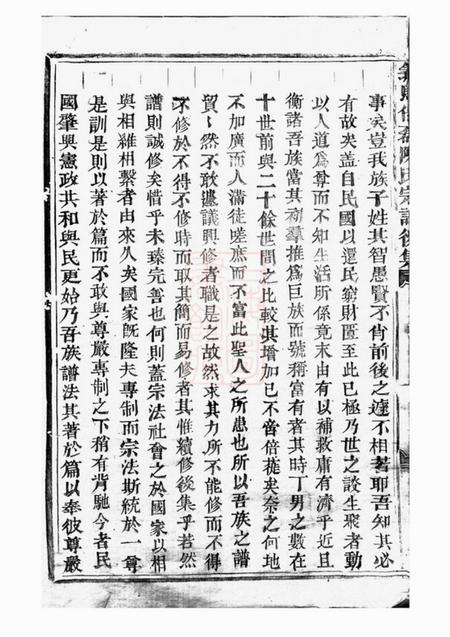 事矣豈我族子姓其智愚賢不肖前後之遽不相若耶吾知其必
有故矣蓋自民國以還民窮財匱至此已極乃世之談生聚者動
以人道為尊而不知生活所係竟末由有以補救庸有濟乎近且
衡諸吾族當其初羣推為巨族而號稱富有者其時丁男之數在
十世前與二十餘世間之比較其增加已不啻倍蓰矣奈之何地
不加廣而人滿徒嗟庶而不富此聖人之所患也所以吾族之譜
貿貿然不敢遽議興修者職是之故然求其力所不能修而不得
不修於不得不修時而取其簡而易修者其惟續修後集乎若然
譜則誠修矣惜乎未臻完善也何則蓋宗法社會之於國家以相
與相維相繫者由來久矣國家旣隆夫專制而宗法斯統於一尊
是訓是則以著於篇而不敢與尊嚴專制之下稍有背馳今者民
國肇興憲政共和與民更始乃吾族譜法其著於篇以奉彼尊嚴